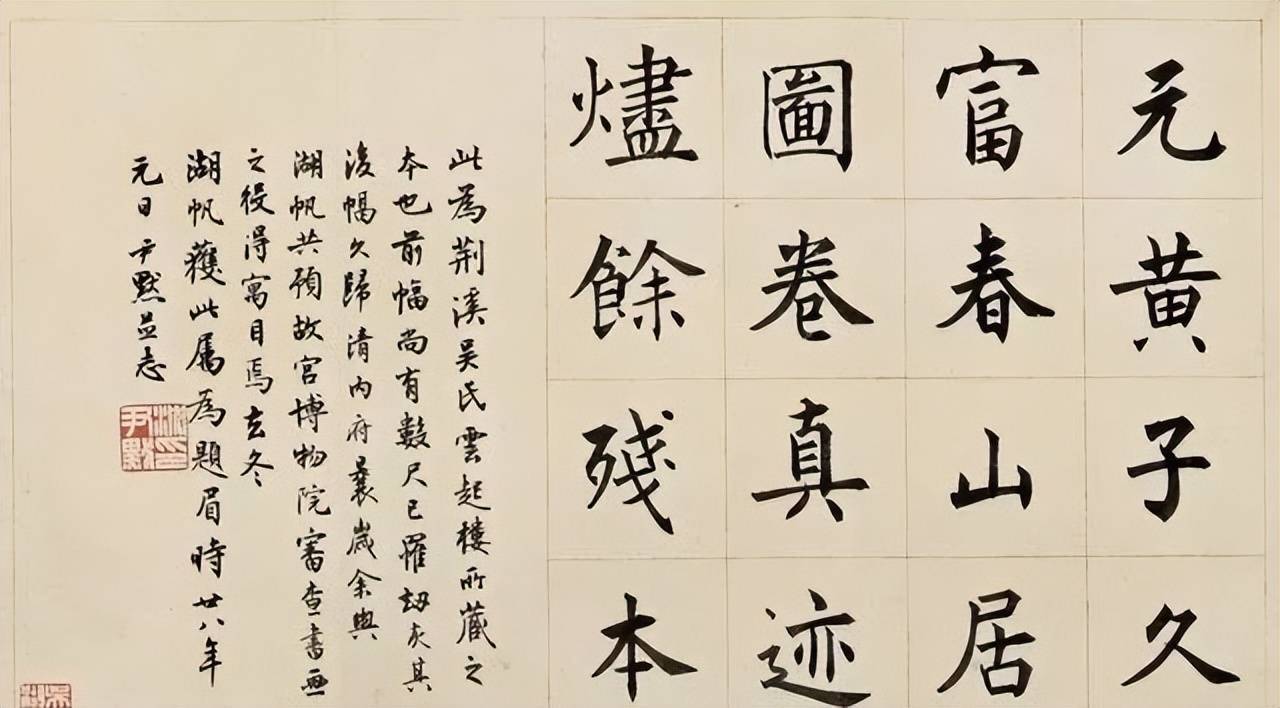 元黄子久
富春山居
圖卷真迹
燼餘殘本
此為荆溪吴氏雲起樓所藏之
本也前幅尚有數尺已罹劫灰其
後幅久歸清内府曩歲余與
湖帆共預故宫博物院審查書畫
之役得寓目焉玄冬
湖帆獲此屬為題眉時廿八年
元日尹默並志
沈印
尹默